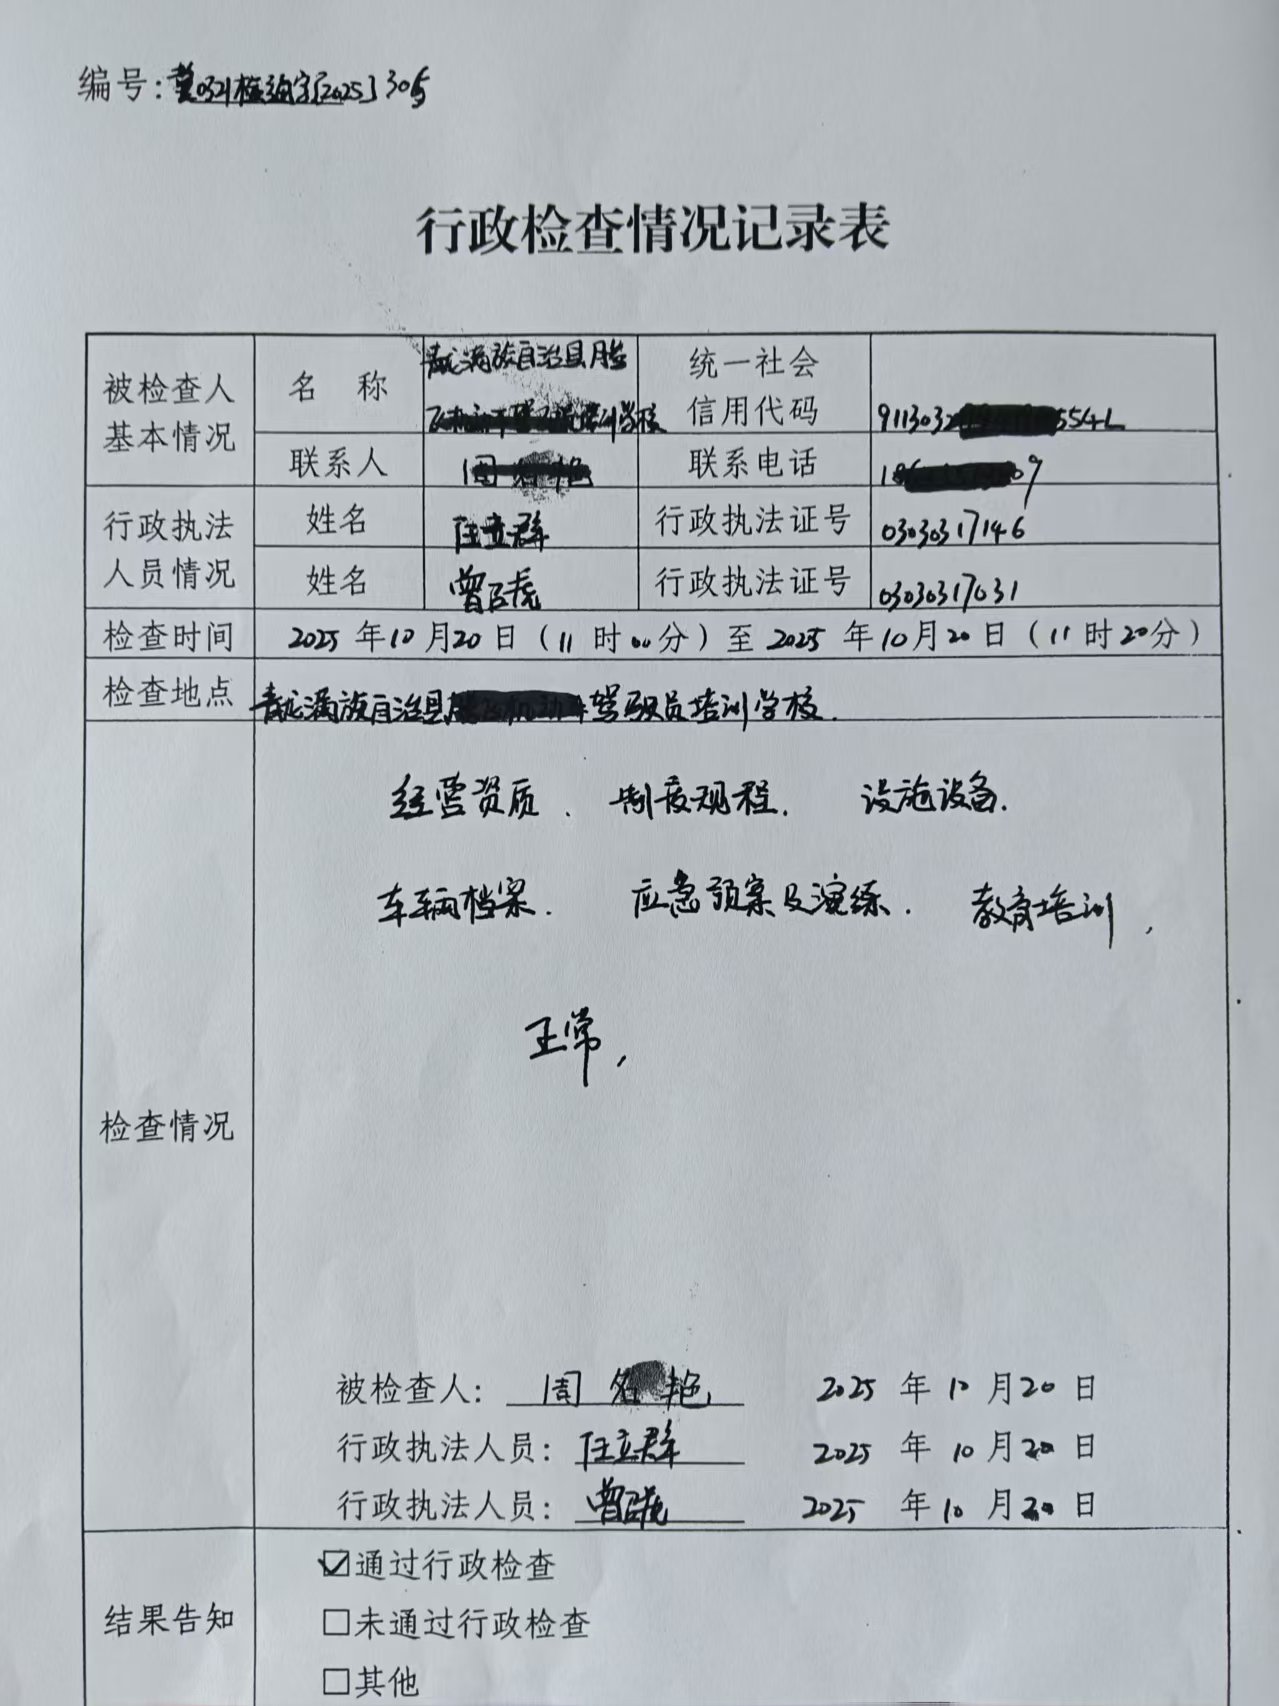 编号：冀0321检通字[2025]305
行政检查情况记录表
被检查人基本情况 名称 青龙满族自治县 学校 统一社会信用代码 9113032 554L
联系人 周 联系电话 18 09
行政执法人员情况 姓名 任立群 行政执法证号 03030317146
姓名 曾 虎 行政执法证号 03030317031
检查时间 2025年10月20日（11时00分）至2025年10月20日（11时20分）
检查地点 青龙满族自治县 驾驶员培训学校.
检查情况
经营资质、制度规程. 设施设备.
车辆档案. 应急预案及演练. 教育培训,
正常,
被检查人：周 艳 2025年10月20日
行政执法人员：任立群 2025年10月20日
行政执法人员：曾 虎 2025年10月20日
结果告知
☑通过行政检查
□未通过行政检查
□其他